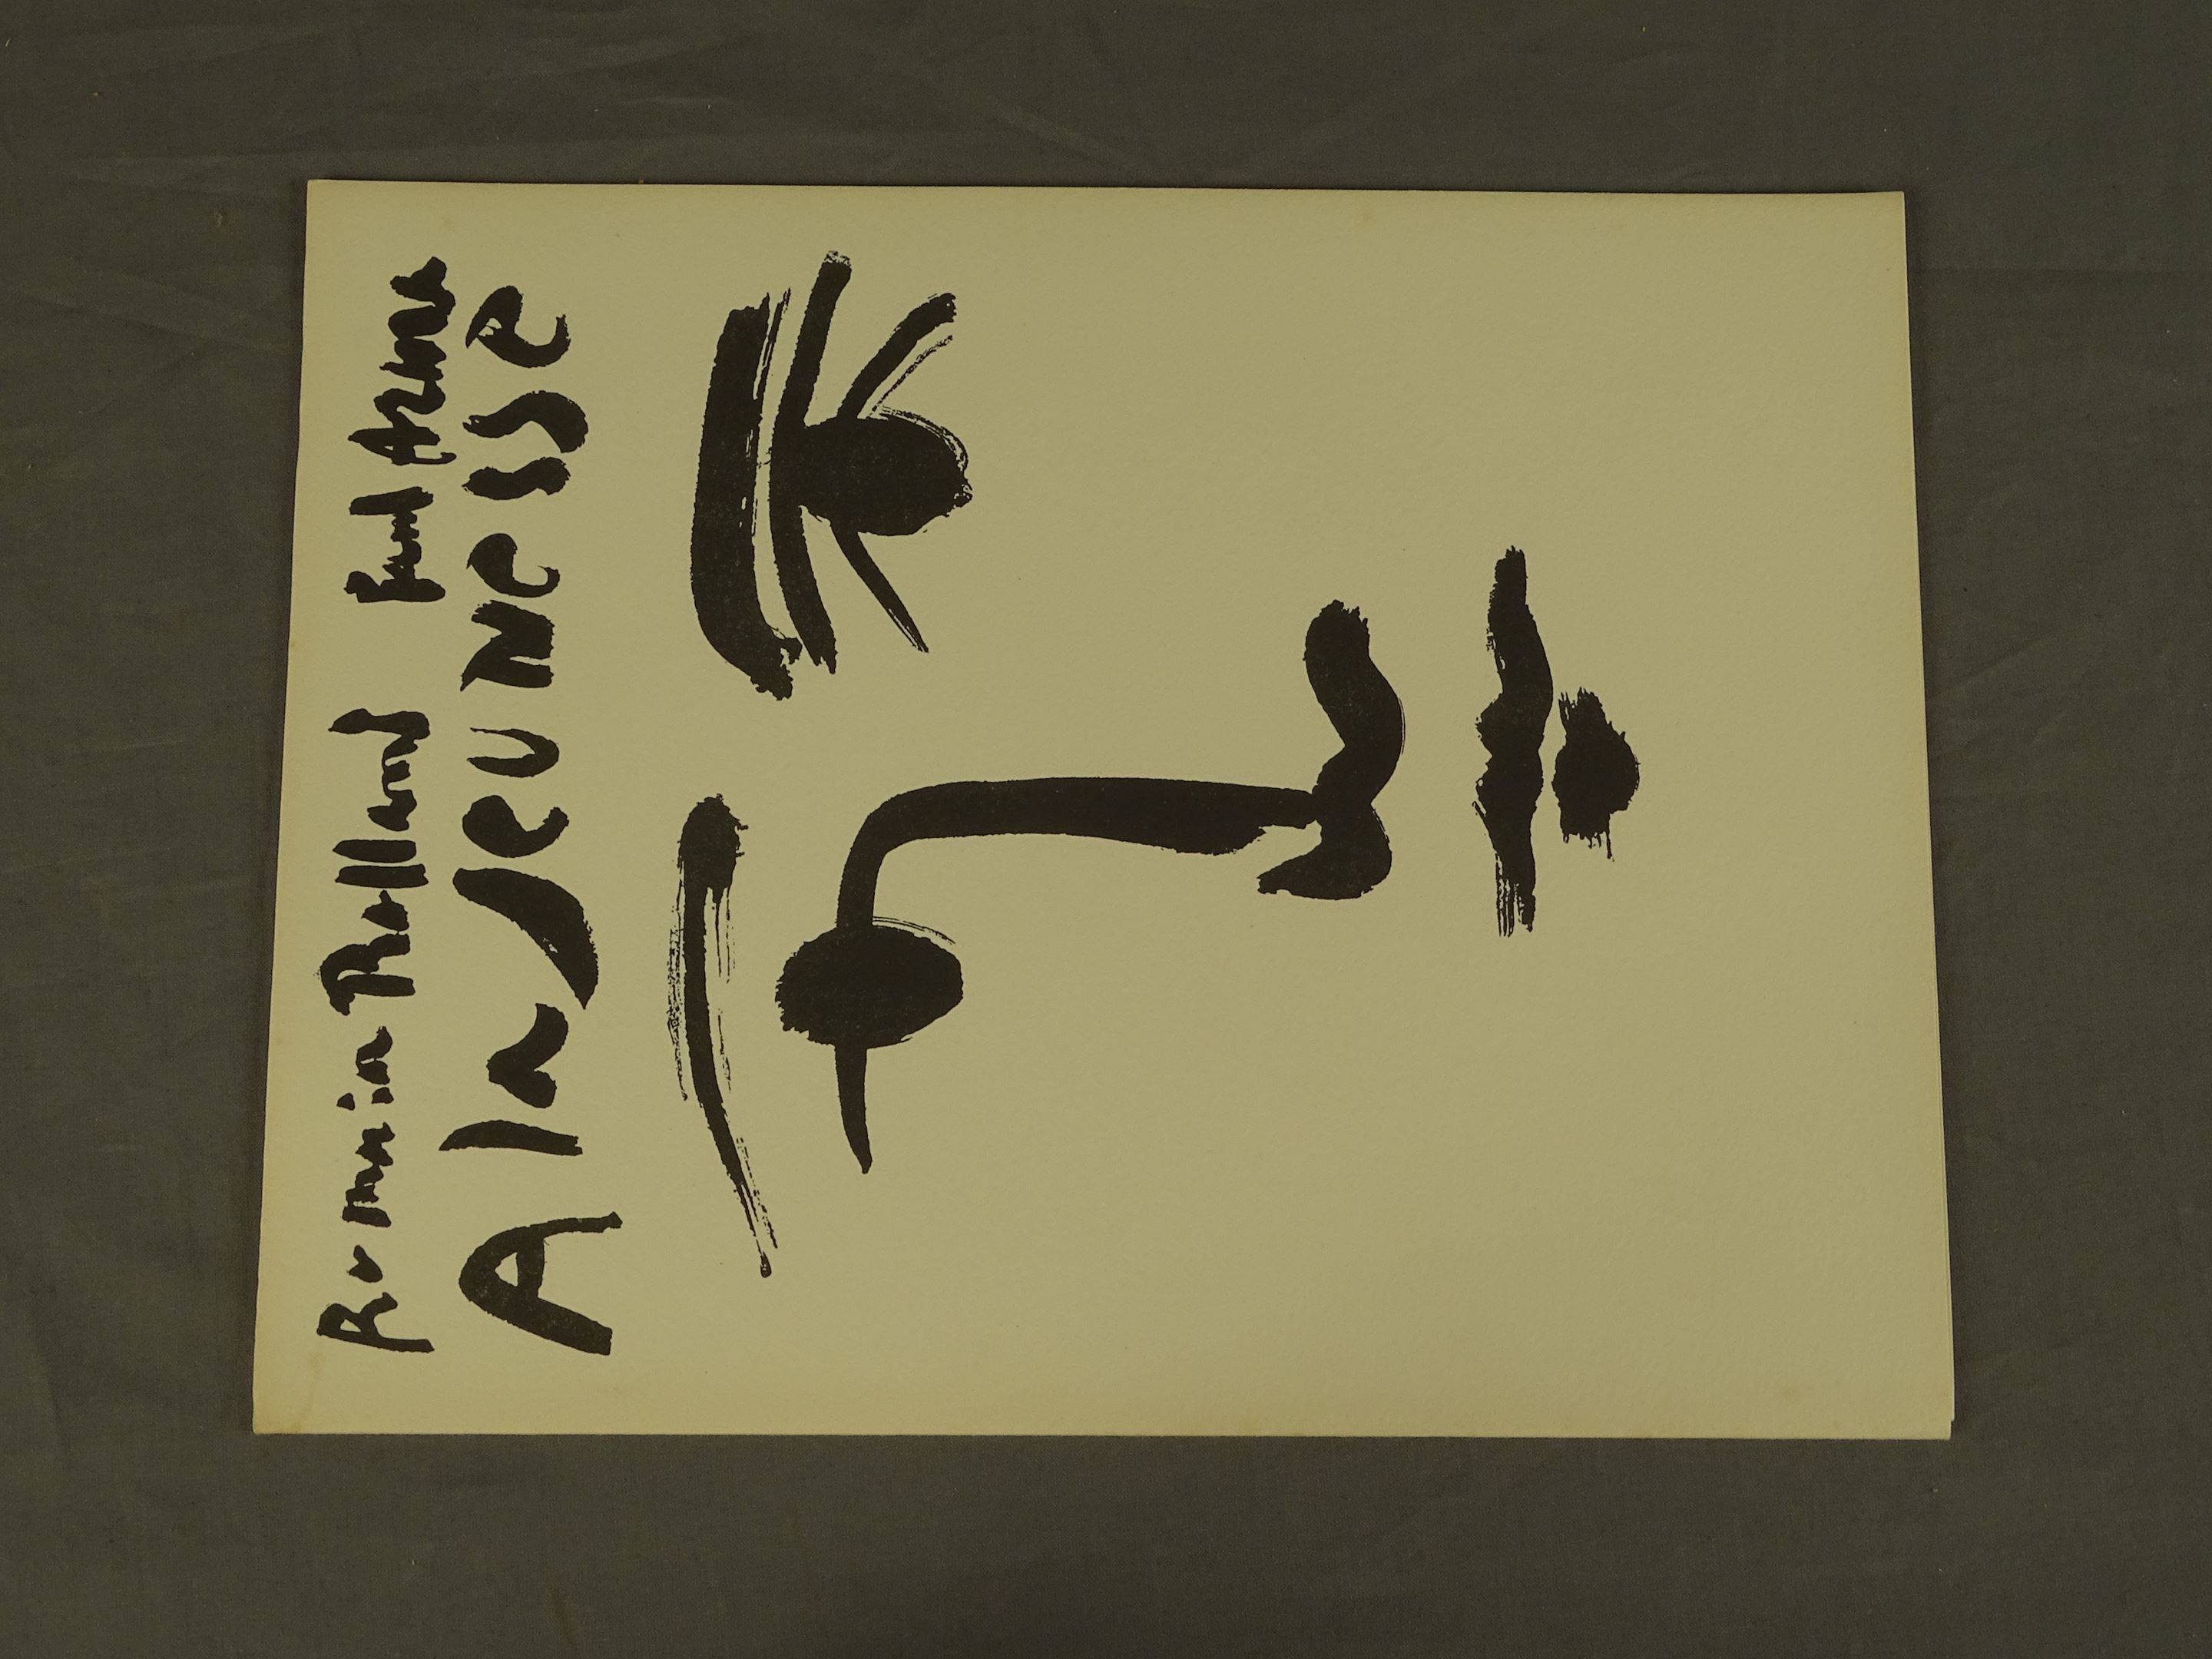 Romain Rolland Paul Arma
A la JeuNesse